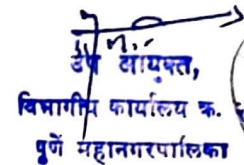 उप आयुक्त,
विभागीय कार्यालय क.
पुणे महानगरपालिका